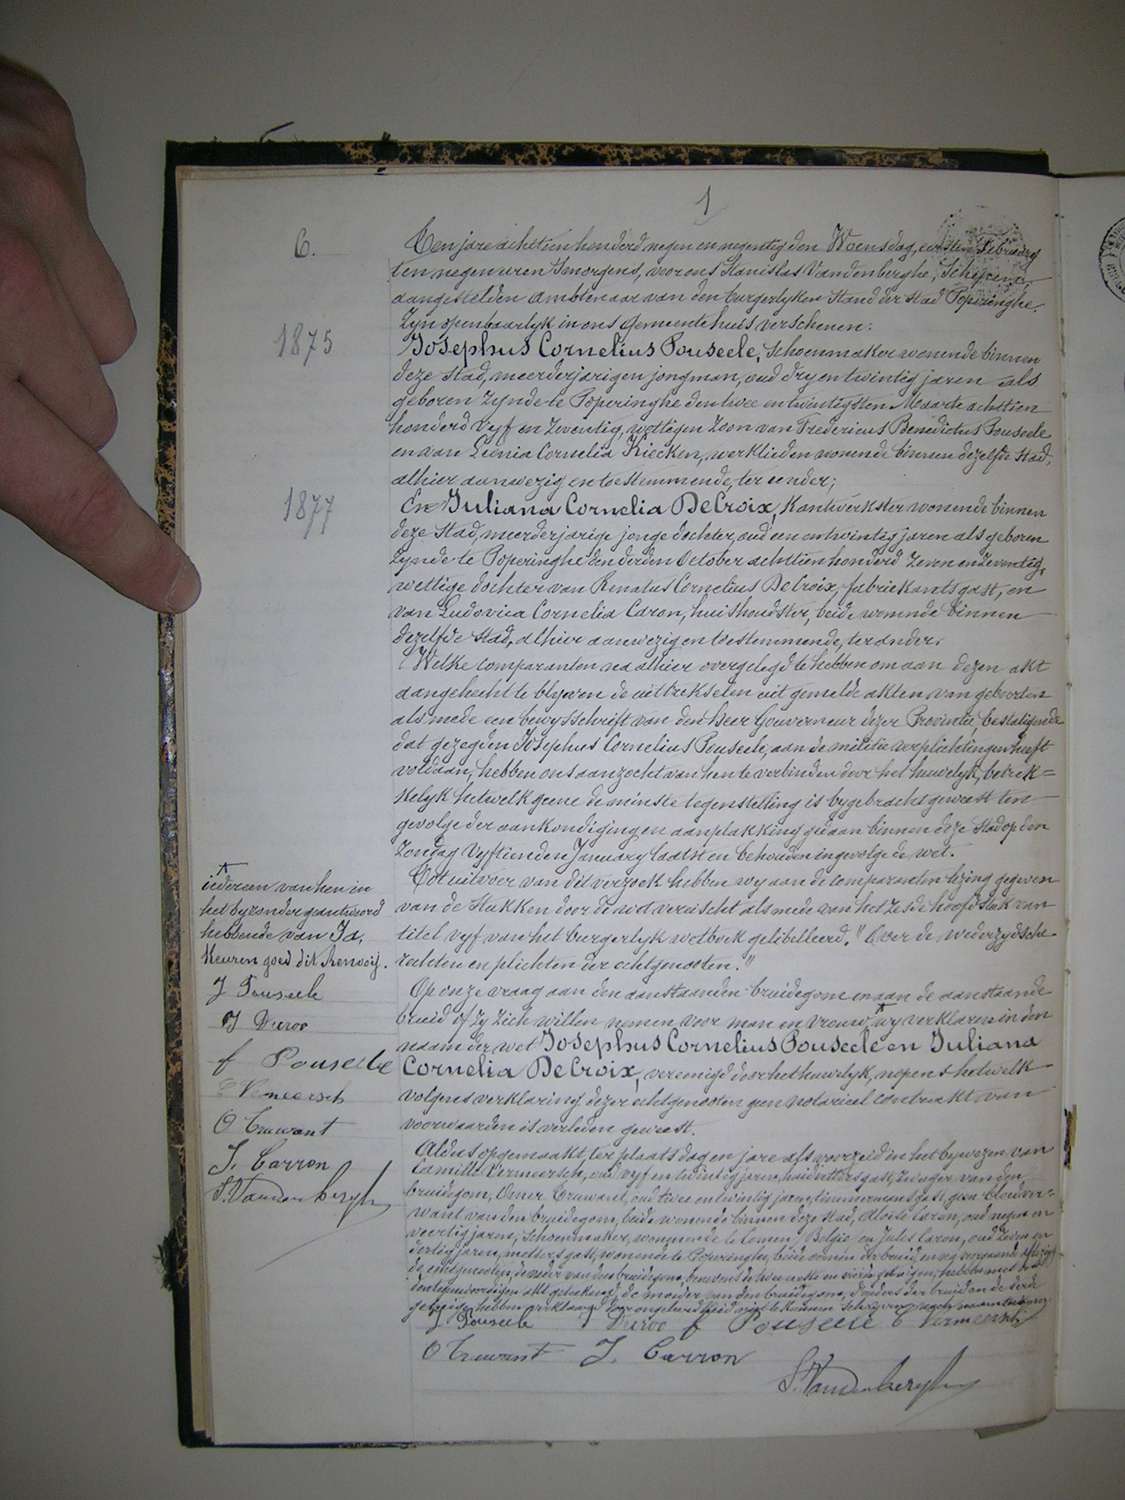 1
6.
Ten jare achttien honderd negen en negentig den Woensdag, eersten Februarij
ten negen uren 's morgens, voor ons Stanislas Vandenberghe, Schepene,
aangestelden ambtenaar van den burgerlyken Stand der stad Poperinghe.
Zyn openbaarlyk in ons Gemeentehuis verschenen:
1875
Josephus Cornelius Pouseele, Schoenmaker wonende binnen
deze stad, meerderjarigen jongman, oud dry en twintig jaren als
geboren zynde te Poperinghe den twee en twintigsten Maarte achttien
honderd vyf en zeventig, wettigen zoon van Fredericus Benedictus Pouseele
en van Leonia Cornelia Kiecken, werklieden wonende binnen dezelfde stad,
alhier aanwezig en toestemmende, ter eender;
1877
En Juliana Cornelia DeCroix, Kantwerkster wonende binnen
deze Stad, meerderjarige jonge dochter, oud een en twintig jaren als geboren
zynde te Poperinghe den derden October achttien honderd zeven en zeventig,
wettige dochter van Renatus Cornelius DeCroix, fabriekantsgast, en
van Ludovica Cornelia Caron, huishoudster, beide wonende binnen
dezelfde stad, alhier aanwezig en toestemmende, ter ander.
Welke comparanten na alhier overgelegd te hebben om aan dezen akt
aangehecht te blyven de uittrekselen uit gemelde akten van geboorten
als mede een bewysschrift van den heer Gouverneur dezer Provintie, bestatigende
dat gezegden Josephus Cornelius Pouseele, aan de militie verplichtingen heeft
voldaan, hebben ons aanzocht van hen te verbinden door het huwelyk, betrek=
kelyk hetwelk geene de minste tegenstelling is bygebracht geweest ten
gevolge der aankondiging en aanplakking gedaan binnen deze Stad op den
Zondag Vyftienden January laatst en behouden ingevolge de wet.
Tot uitvoer van dit verzoek hebben wy aan de comparanten lezing gegeven
van de Stukken door de wet vereischt als mede van het zesde hoofdstuk van
titel vyf van het burgerlyk wetboek gelibelleerd. "Over de wederzydsche
rechten en plichten der echtgenooten."
iedereen van hen in
het byzonder geantwoord
hebbende van Ja,
Keuren goed dit Renvooij.
J Pouseele
J Decroo
f Pouseele
C Vermeersch
O Truwant
J. Carron
S. Vandenberghe
Op onze vraag aan den aanstaanden bruidegom en aan de aanstaande
bruid of zy zich willen nemen voor man en vrouw, wy verklaren in den
naam der wet Josephus Cornelius Pouseele en Juliana
Cornelia DeCroix, vereenigd door het huwelyk, nopens hetwelk
volgens verklaring dezer echtgenooten geen notarieel contrakt van
voorwaarden is verleden geweest.
Aldus opgemaakt, ter plaats dag en jare als voorzeid in het bywezen van
Camille Vermeersch, oud vyf en twintig jaren, huidvettersgast, zwager van den
bruidegom, Omer Truwant, oud twee en twintig jaren, timmermansgast, geen bloedver=
want van den bruidegom, beide wonende binnen deze stad, Aloïse Caron, oud negen en
veertig jaren, Schoenmaker, wonende te Comen, Belgie en Jules Caron, oud zeven en
dertig jaren, metsersgast, wonende te Poperinghe, beide oomen der bruid, en na voorgaande lezing
de echtgenooten, de vader van den bruidegom, benevens de twee eerste en vierde getuigen, hebben met ons
den tegenwoordigen akt geteekend, de moeder van den bruidegom, d'ouders der bruid en de derde
getuige hebben verklaard door ongeleerdheid niet te kunnen schryven noch naamteekenen
J Pouseele J Decroo f Pouseele C Vermeersch
O Truwant J. Carron
S. Vandenberghe